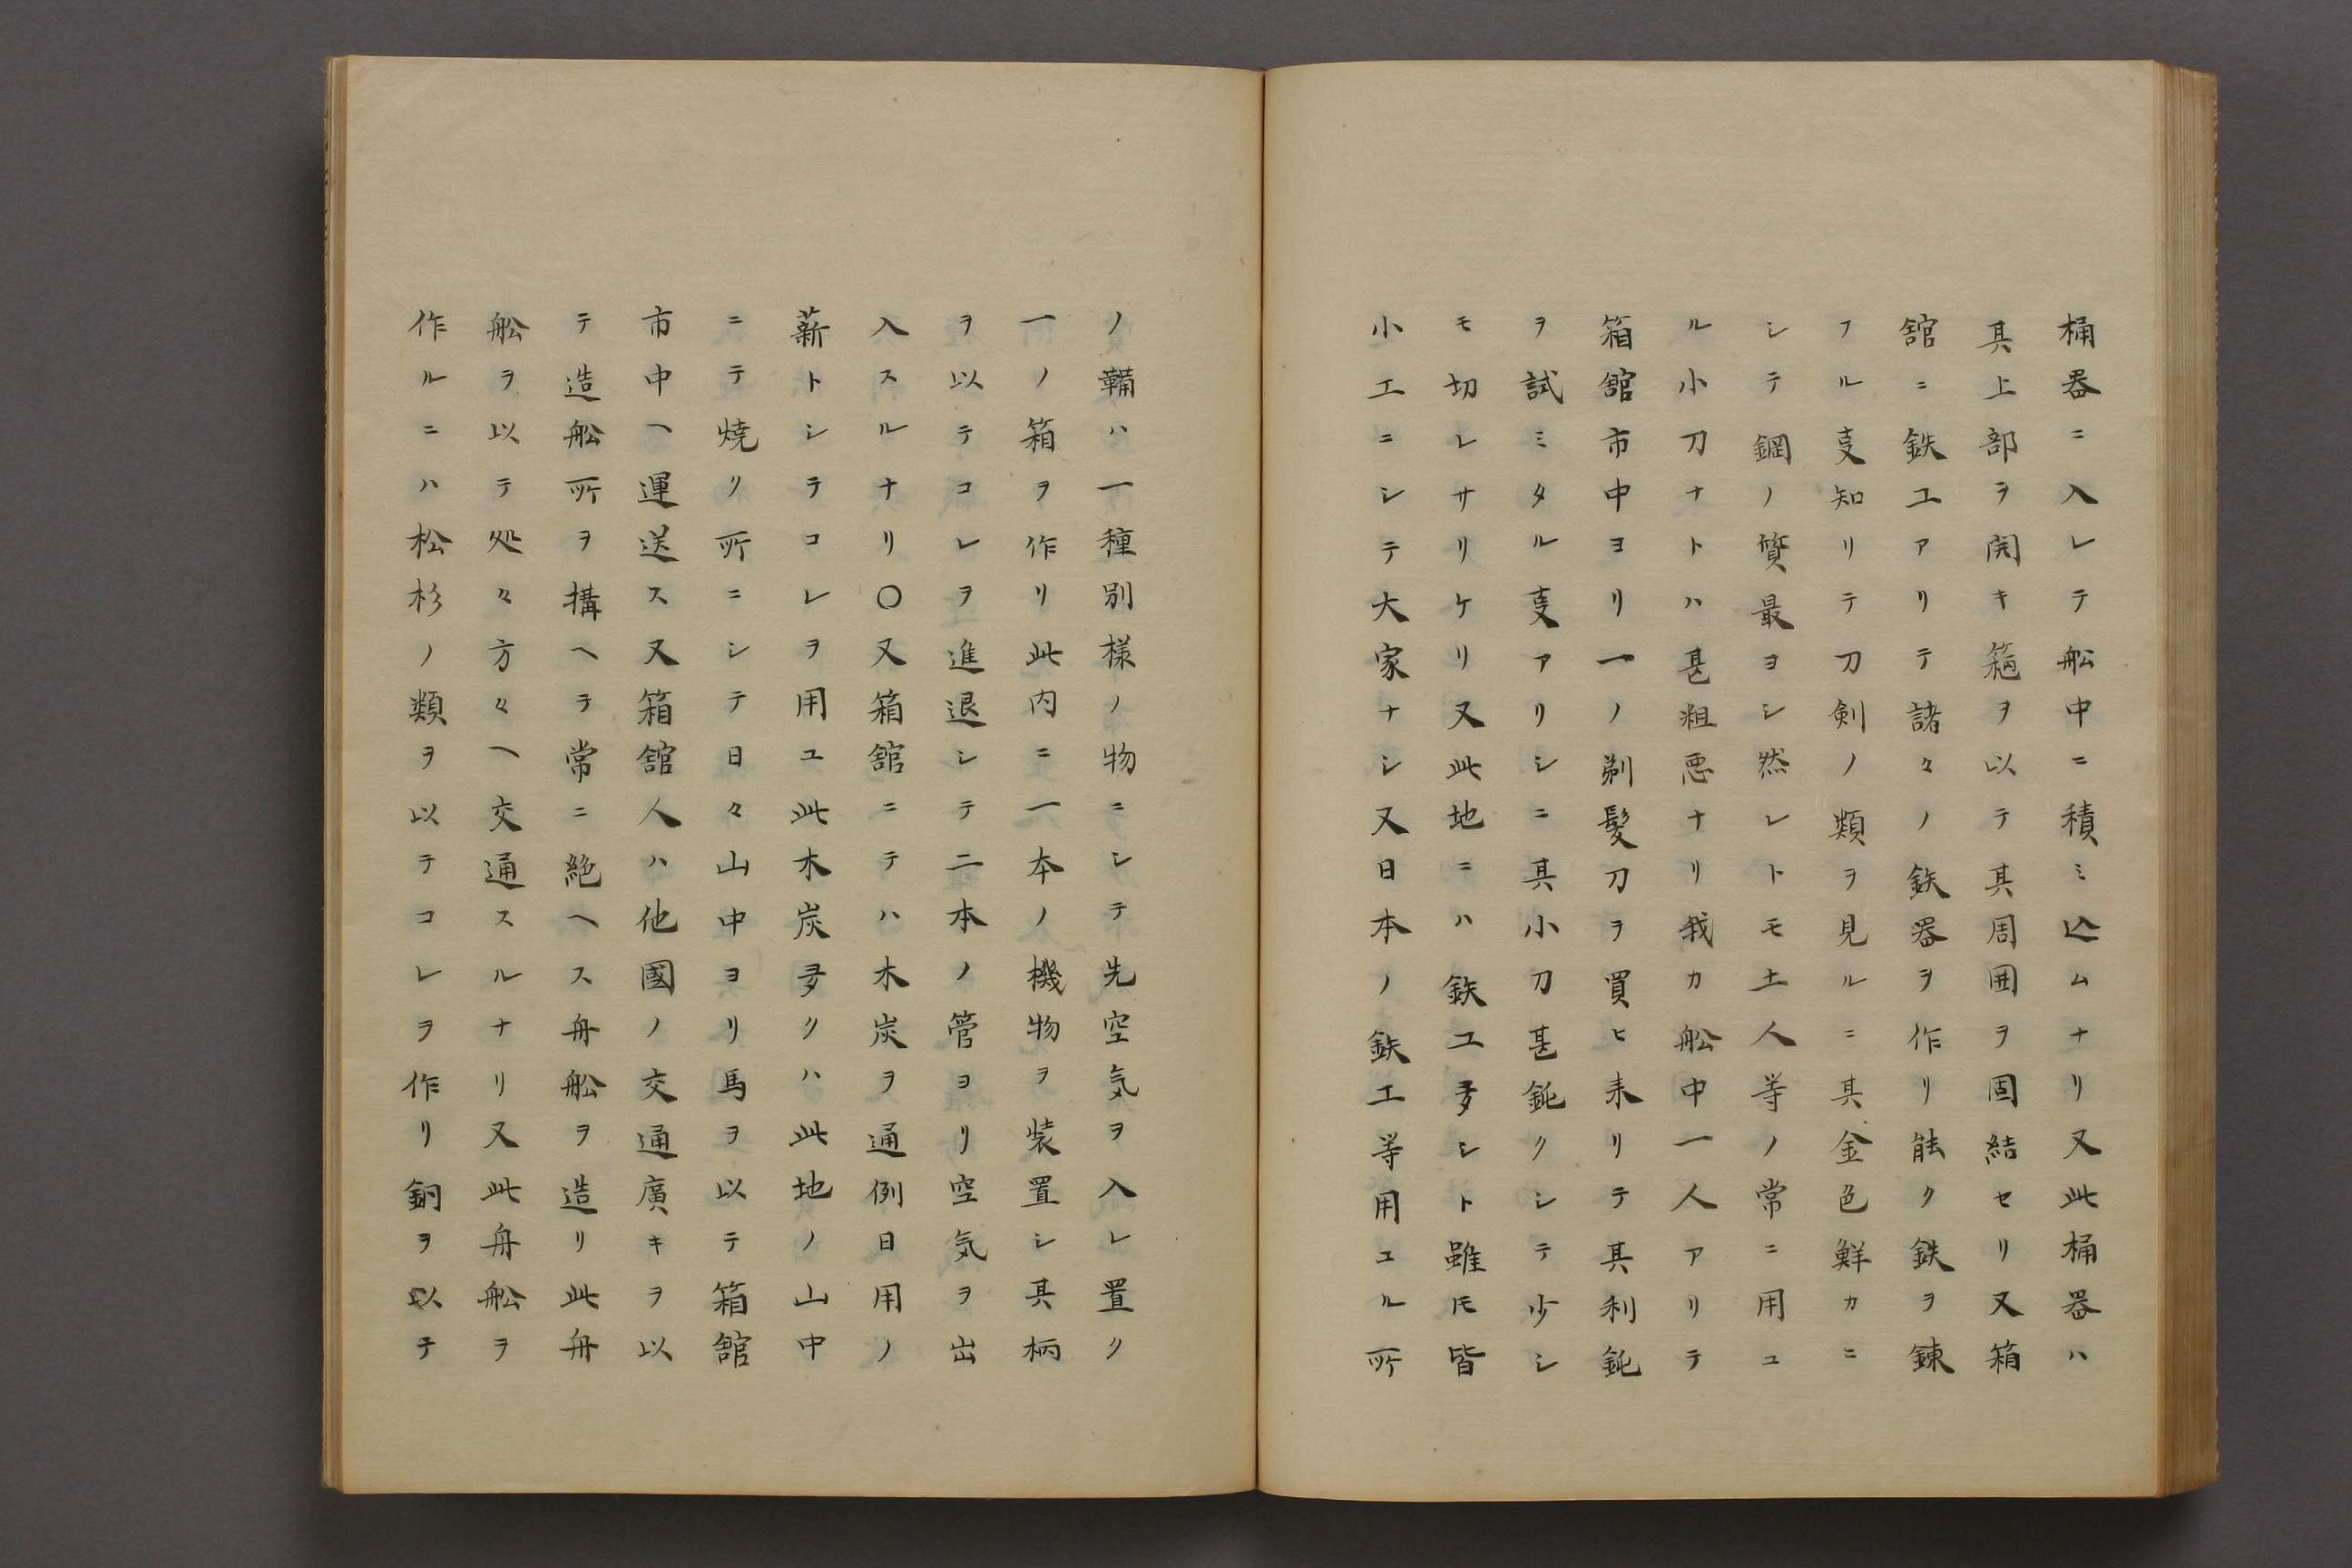 桶器ニ入レテ舩中ニ積ミ込ムナリ又此桶器ハ
其上部ヲ開キ箍ヲ以テ其周囲ヲ固結セリ又箱
舘ニ鉄工アリテ諸々ノ鉄器ヲ作リ能ク鉄ヲ錬
フル叓知リテ刀剣ノ類ヲ見ルニ其金色鮮カニ
シテ鋼ノ質最ヨシ然レトモ土人等ノ常ニ用ユ
ル小刀ナトハ甚粗悪ナリ我カ舩中一人アリテ
箱舘市中ヨリ一ノ剃髪刀ヲ買ヒ来リテ其利鈍
ヲ試ミタル叓アリシニ其小刀甚鈍クシテ少シ
モ切レサリケリ又此地ニハ鉄工多シト雖𪜈皆
小工ニシテ大家ナシ又日本ノ鉄工等用ユル所
ノ鞴ハ一種別様ノ物ニシテ先空気ヲ入レ置ク
一ノ箱ヲ作リ此内ニ一本ノ機物ヲ装置シ其柄
ヲ以テコレヲ進退シテ二本ノ管ヨリ空気ヲ出
入スルナリ〇又箱舘ニテハ木炭ヲ通例日用ノ
薪トシテコレヲ用ユ此木炭多クハ此地ノ山中
ニテ焼リ所ニシテ日々山中ヨリ馬ヲ以テ箱舘
市中ヘ運送ス又箱舘人ハ他國ノ交通廣キヲ以
テ造舩所ヲ搆ヘテ常ニ絶ヘス舟舩ヲ造リ此舟
舩ヲ以テ処々方々ヘ交通スルナリ又此舟舩ヲ
作ルニハ松杉ノ類ヲ以テコレヲ作リ銅ヲ以テ